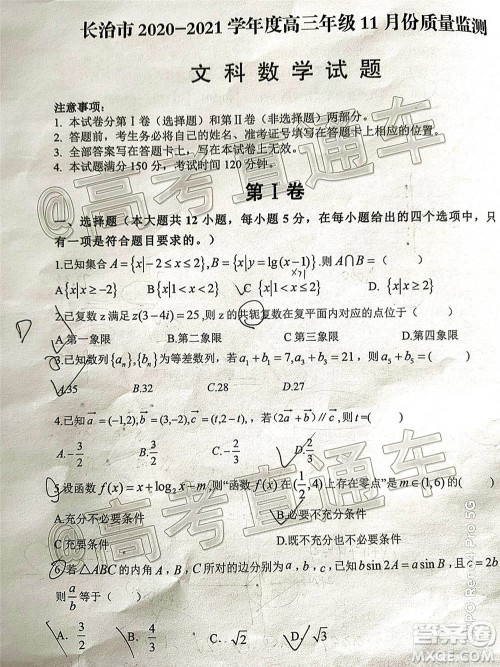 长治市 2020-2021 学年度高三年级 11 月份质量监测
文科数学试题
注意事项:
1. 本试卷分第Ⅰ卷(选择题)和第Ⅱ卷(非选择题)两部分。
2. 答题前,考生务必将自己的姓名、准考证号填写在答题卡上相应的位置。
3. 全部答案写在答题卡上,写在本试卷上无效。
4. 本试题满分 150 分,考试时间 120 分钟。
第Ⅰ卷
一、选择题(本大题共 12 小题,每小题 5 分,在每小题给出的四个选项中,只
有一项是符合题目要求的。)
1.已知集合 A={x|-2≤x≤2},B={x|y=lg(x-1)}.则 A∩B=( )
x>1
A{x|x≥-2} B{x|1<x<2} C{x|1<x≤2} D.{x|x≥2}
D
2.已复数 z 满足 z(3-4i)=25,则 z 的共轭复数在复平面内对应的点位于( )
A.第一象限 B.第二象限 C.第三象限 D.第四象限
3.已知数列{aₙ},{bₙ}为等差数列,若 a₁+b₁=7,a₃+b₃=21,则 a₅+b₅=( )
A.35 B.32 C.28 D.27
4.已知 a=(-1,2),b=(3,-2),c=(t,2-t),若(2a+b)∥c,则 t=( )
A.-3/2 B.3/2 C.-2/3 D.2/3
5.设函数 f(x)=x+log₂x-m,则“函数 f(x)在(1/2,4)上存在零点”是 m∈(1,6)的( )
A.充分不必要条件 B.必要不充分条件
C 充要条件 D.既不充分也不必要条件
6.若△ABC 的内角 A,B,C 所对的边分别为 a,b,c,已知 b sin2A=a sinB,且 c=2b
则 a/b 等于( )
A. 3/2 B. 4/3 C. √2 D. √3
@高考直通车
@高考直通车
POCO Revet Pro5G
答案圈
MXQE.COM